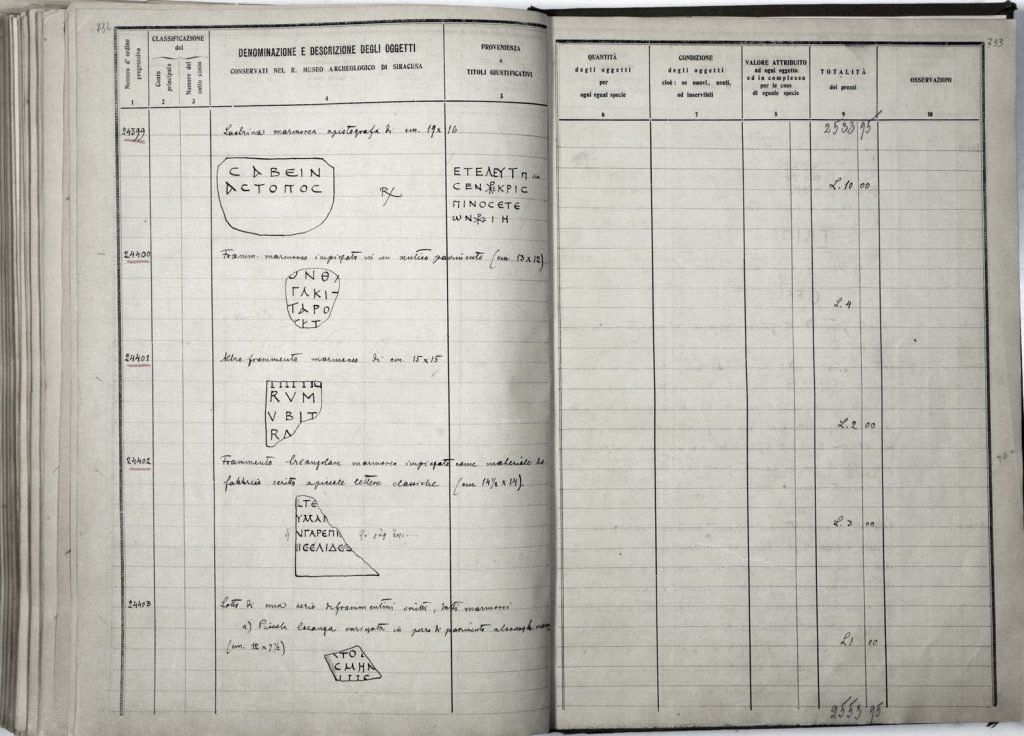 732
CLASSIFICAZIONE
del
Numero d'ordine progressivo
Conto principale
Numero del sotto conto
DENOMINAZIONE E DESCRIZIONE DEGLI OGGETTI
CONSERVATI NEL R. MUSEO ARCHEOLOGICO DI SIRACUSA
PROVENIENZA
e
TITOLI GIUSTIFICATIVI
1 2 3 4 5
24399
Lastrina marmorea opistografa di cm. 19 x 16
CABEIN
ACTOΠOC
ETEΛEYT
CEN KPIC
ΠINOCETE
ωN IH
24400
Framm. marmoreo impiegato in un antico pavimento (cm. 13 x 12)
ONΘ
ΓAKI
TAPO
CKT
24401
Altro frammento marmoreo di cm. 15 x 15
RVM
VBIT
RA
24402
Frammento triangolare marmoreo impiegato come materiale da
fabbrica scritto a piccole lettere classiche (cm 14½ x 14).
ΤΕ
YMAN
NΓAPEΠ
ICEΛIΔEC
24403
Lotto di una serie di frammentini scritti, tutti marmorei
a) Piccola losanga in pezzo di pavimento
(cm. 12 x 7½)
ATOC
CMHN
733
QUANTITÀ
degli oggetti
per
ogni egual specie
CONDIZIONE
degli oggetti
cioè: se nuovi, usati,
od inservibili
VALORE ATTRIBUITO
ad ogni oggetto
ed in complesso
per le cose
di eguale specie
TOTALITÀ
dei prezzi
OSSERVAZIONI
6 7 8 9 10
2533 95
L. 10 00
L. 4
L. 2 00
L. 3 00
L. 1 00
2553 95